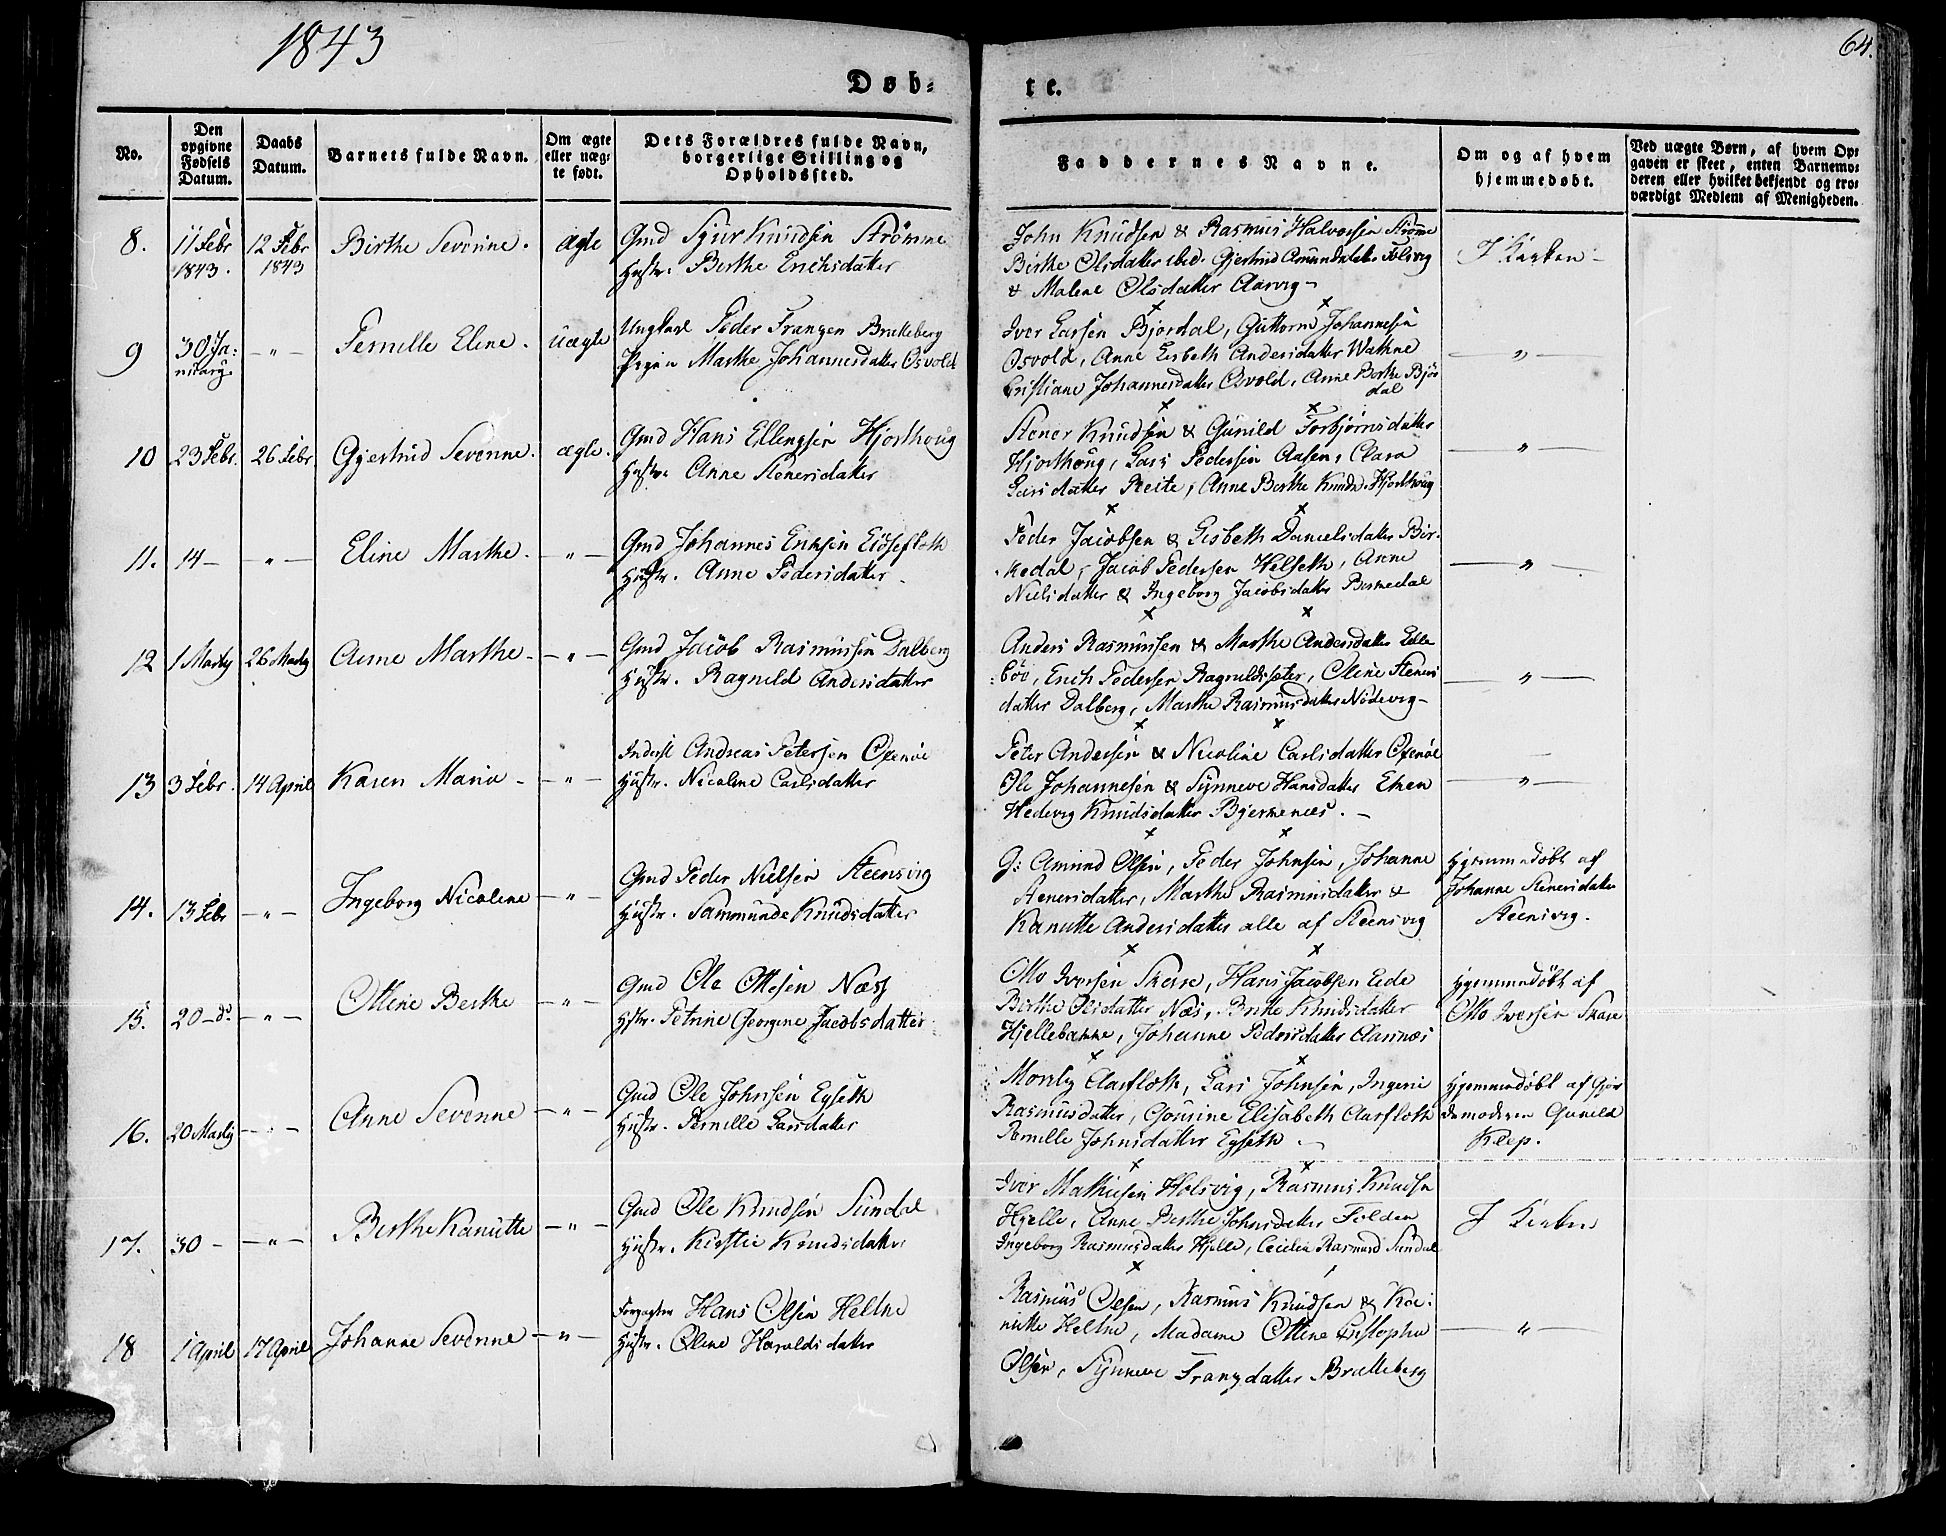 1843
64.
Døb-
te.
No.
Den opgivne Fødsels Datum.
Daabs Datum.
Barnets fulde Navn.
Om ægte eller uæg- te født.
Dets Forældres fulde Navn, borgerlige Stilling og Opholdssted.
Faddernes Navne.
Om og af hvem hjemmedøbt.
Ved uægte Børn, af hvem Op-
gaven er skeet, enten Barnemo-
deren eller hvilket bekjendt og tro-
værdigt Medlem af Menigheden.
8. 11 Febr 1843. 12 Febr 1843 Birthe Severine. ægte
Gmd Sjur Knudsen Strömme
Hustr. Berthe Erichsdatter
John Knudsen & Rasmus Halvorsen Ströme
Birthe Olsdatter ibid. Gjertrud Amundsdatter Folsvig
& Malene Olsdatter Aarvig
I Kirken
9 30 Ja-nuary. - " - Pernille Eline. Uægte
Ungkarl Peder Franzen Bratteberg
Pigen Marthe Johannesdatter Osvold
Iver Larsen Bjørdal, Guttorm Johannesen
Osvold, Anne Lisbeth Andersdatter Wathne
Cristiane Johannesdatter Osvold, Anne Berthe Bjør
dal
- " -
10 23 Febr. 26 Febr. Gjertrud Severine. ægte.
Gmd Hans Ellingsen Hjorthoug
Hustr. Anne Stenersdatter
Stener Knudsen & Gunild Torbjørnsdatter
Hjorthoug, Lars Pedersen Aasen, Clara
Larsdatter Reite, Anne Berthe Knudsd. Hjorthoug
- " -
11. 14 - - " - Eline Marthe. - " -
Gmd Johannes Eriksen Eidsefloth
Hustr. Anne Pedersdatter
Peder Jacobsen & Lisbeth Danielsdatter Bir-
kedal, Jacob Pedersen Helseth, Anne
Nielsdatter & Ingeborg Jacobsdatter Berkedal
- " -
12 1 Marty 26 Marty Anne Marthe. - " -
Gmd Jacob Rasmussen Dalberg
Hustr. Ragnild Andersdatter
Anders Rasmussen & Marthe Andersdatter Elle
böv, Erich Pedersen Ragnildsæter, Oline Steners
datter Dalberg, Marthe Rasmusdatter Nödevig
- " -
13 3 Febr. 14 April Karen Maria - - " -
Inderst Andreas Petersen Oxenöe
Hustr. Nicoline Carlsdatter
Peter Andersen & Nicoline Carlsdatter Oxenöe
Ole Johannesen & Synneve Hansdatter
Hedevig Knudsdatter Bjerkenæs.
- " -
14. 13 Febr - " - Ingeborg Nicoline - " -
Gmd Peder Nielsen Steensvig
Hustr. Sammunde Knudsdatter
G: Amund Olsen, Peder Johnsen, Johanne
Stenersdatter, Marthe Rasmusdatter &
Kanutte Andersdatter alle af Steensvig
Hjemmedöbt af
Johanne Stenersdatter
Steensvig.
15. 20 - do. - " - Ottine Berthe - " -
Gmd Ole Ottesen Næss
Hstr. Petrine Georgine Jacobsdatter
Otto Iversen Skare, Hans Jacobsen Eide
Birthe Olsdatter Næs, Birthe Knudsdatter
Hjellebakke, Johanne Pedersdatter Aarnæs
Hjemmedöbt af
Otto Iversen Skare
16. 20 Marty - " - Anne Severine - " -
Gmd Ole Johnsen Egseth
Hustr. Pernille Larsdatter
Moritz Aarfloth, Lars Johnsen, Ingerie
Rasmusdatter, Elisabeth Aarfloth
Pernille Johnsdatter Egseth
Hjemmedöbt af Gjor
demoderen Gunild
Klep.
17. 30 - - " - Berthe Kanutte - " -
Gmd Ole Knudsen Sundal
Hustr. Kirstie Knudsdatter
Iver Mathiesen Holsvig, Rasmus Knudsen
Hjelle, Anne Berthe Johnsdatter Folden
Ingeborg Rasmusdatter Hjelle, Cecilia Rasmusd Sundal
I Kirken
18 1 April 17 April Johanne Severine - " -
Forpagter Hans Olsen Heltne
Hustr. Oline Haraldsdatter
Rasmus Olsen, Rasmus Knudsen & Ka-
nutte Heltne, Madame Ottine Cristopha
Olsen, Synneve Franzdatter Bratteberg
- " -